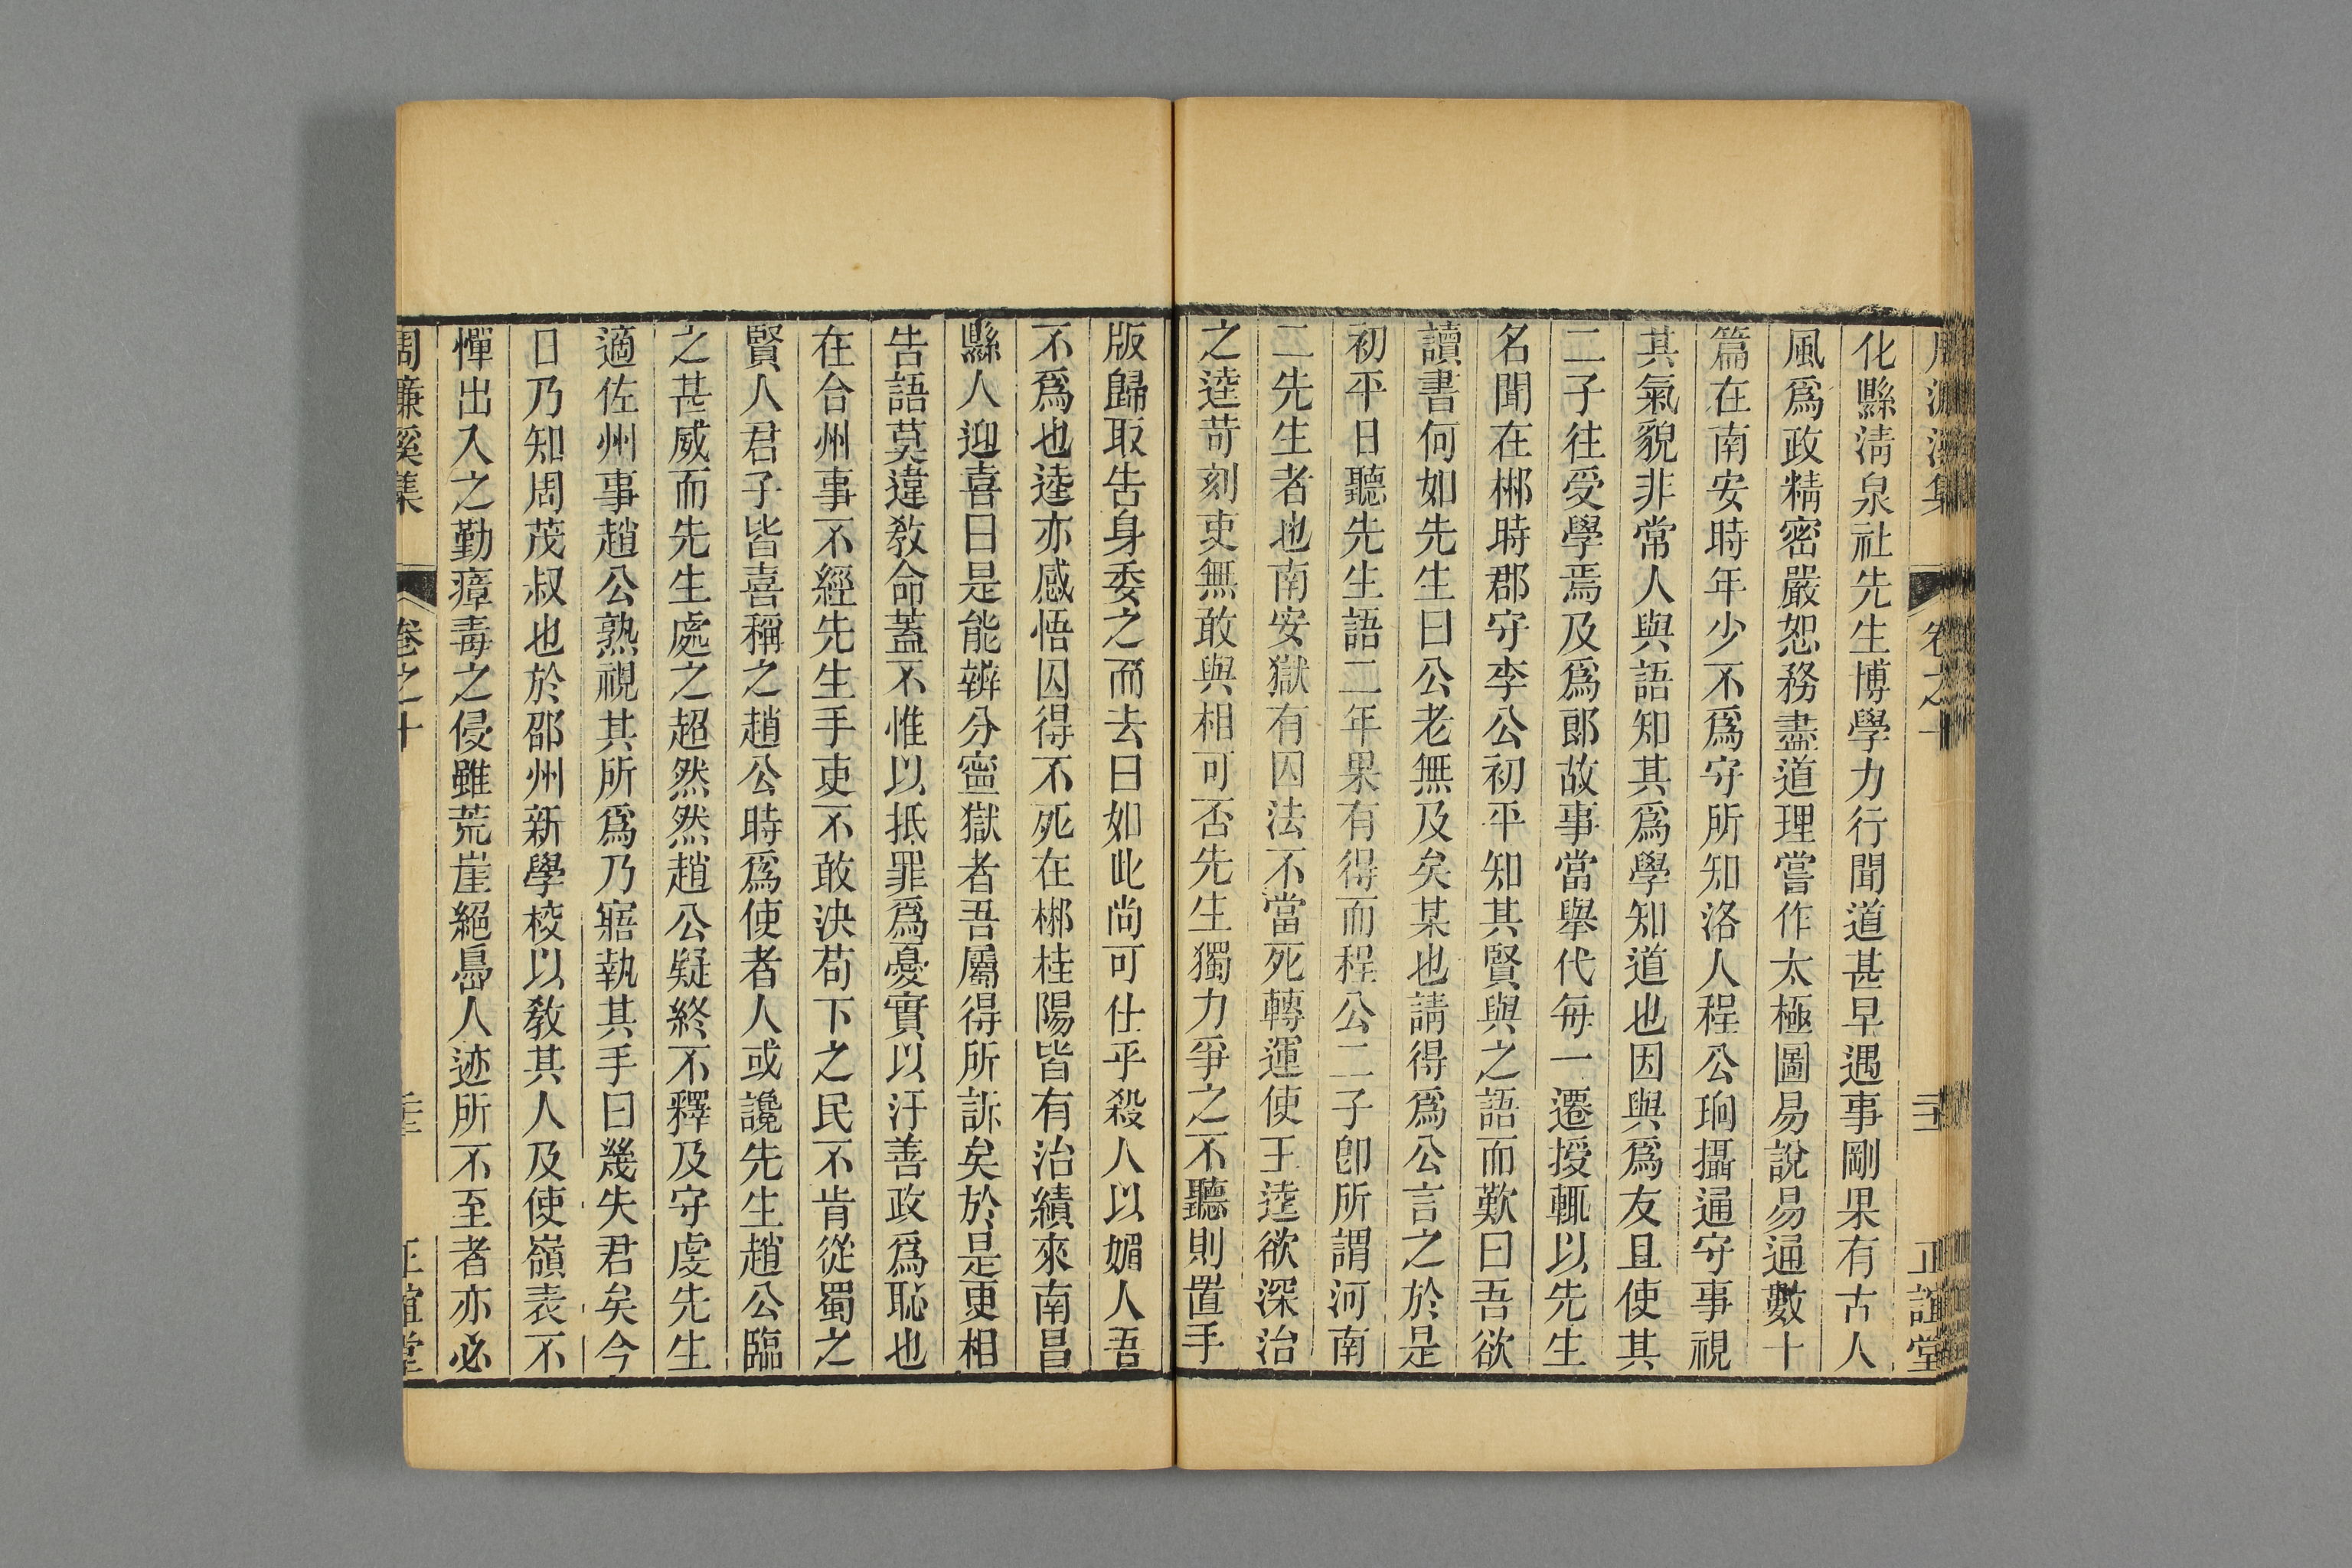 化縣淸泉社先生博學力行聞道甚早遇事剛果有古人
風爲政精密嚴恕務盡道理嘗作太極圖易說易通數十
篇在南安時年少不爲守所知洛人程公珦攝通守事視
其氣貌非常人與語知其爲學知道也因與爲友且使其
二子往受學焉及爲郎故事當舉代每一遷授輒以先生
名聞在郴時郡守李公初平知其賢與之語而歎曰吾欲
讀書何如先生曰公老無及矣某也請得爲公言之於是
初平日聽先生語二年果有得而程公二子卽所謂河南
二先生者也南安獄有囚法不當死轉運使王逵欲深治
之逵苛刻吏無敢與相可否先生獨力爭之不聽則置手
版歸取告身委之而去曰如此尚可仕乎殺人以媚人吾
不爲也逵亦感悟囚得不死在郴桂陽皆有治績來南昌
縣人迎喜曰是能辨分寧獄者吾屬得所訴矣於是更相
告語莫違敎命蓋不惟以抵罪爲憂實以汙善政爲恥也
在合州事不經先生手吏不敢決苟下之民不肯從蜀之
賢人君子皆喜稱之趙公時爲使者人或讒先生趙公臨
之甚威而先生處之超然然趙公疑終不釋及守虔先生
適佐州事趙公熟視其所爲乃寤執其手曰幾失君矣今
日乃知周茂叔也於邵州新學校以敎其人及使嶺表不
憚出入之勤瘴毒之侵雖荒崖絕島人迹所不至者亦必
周濂溪集 卷之十 正誼堂